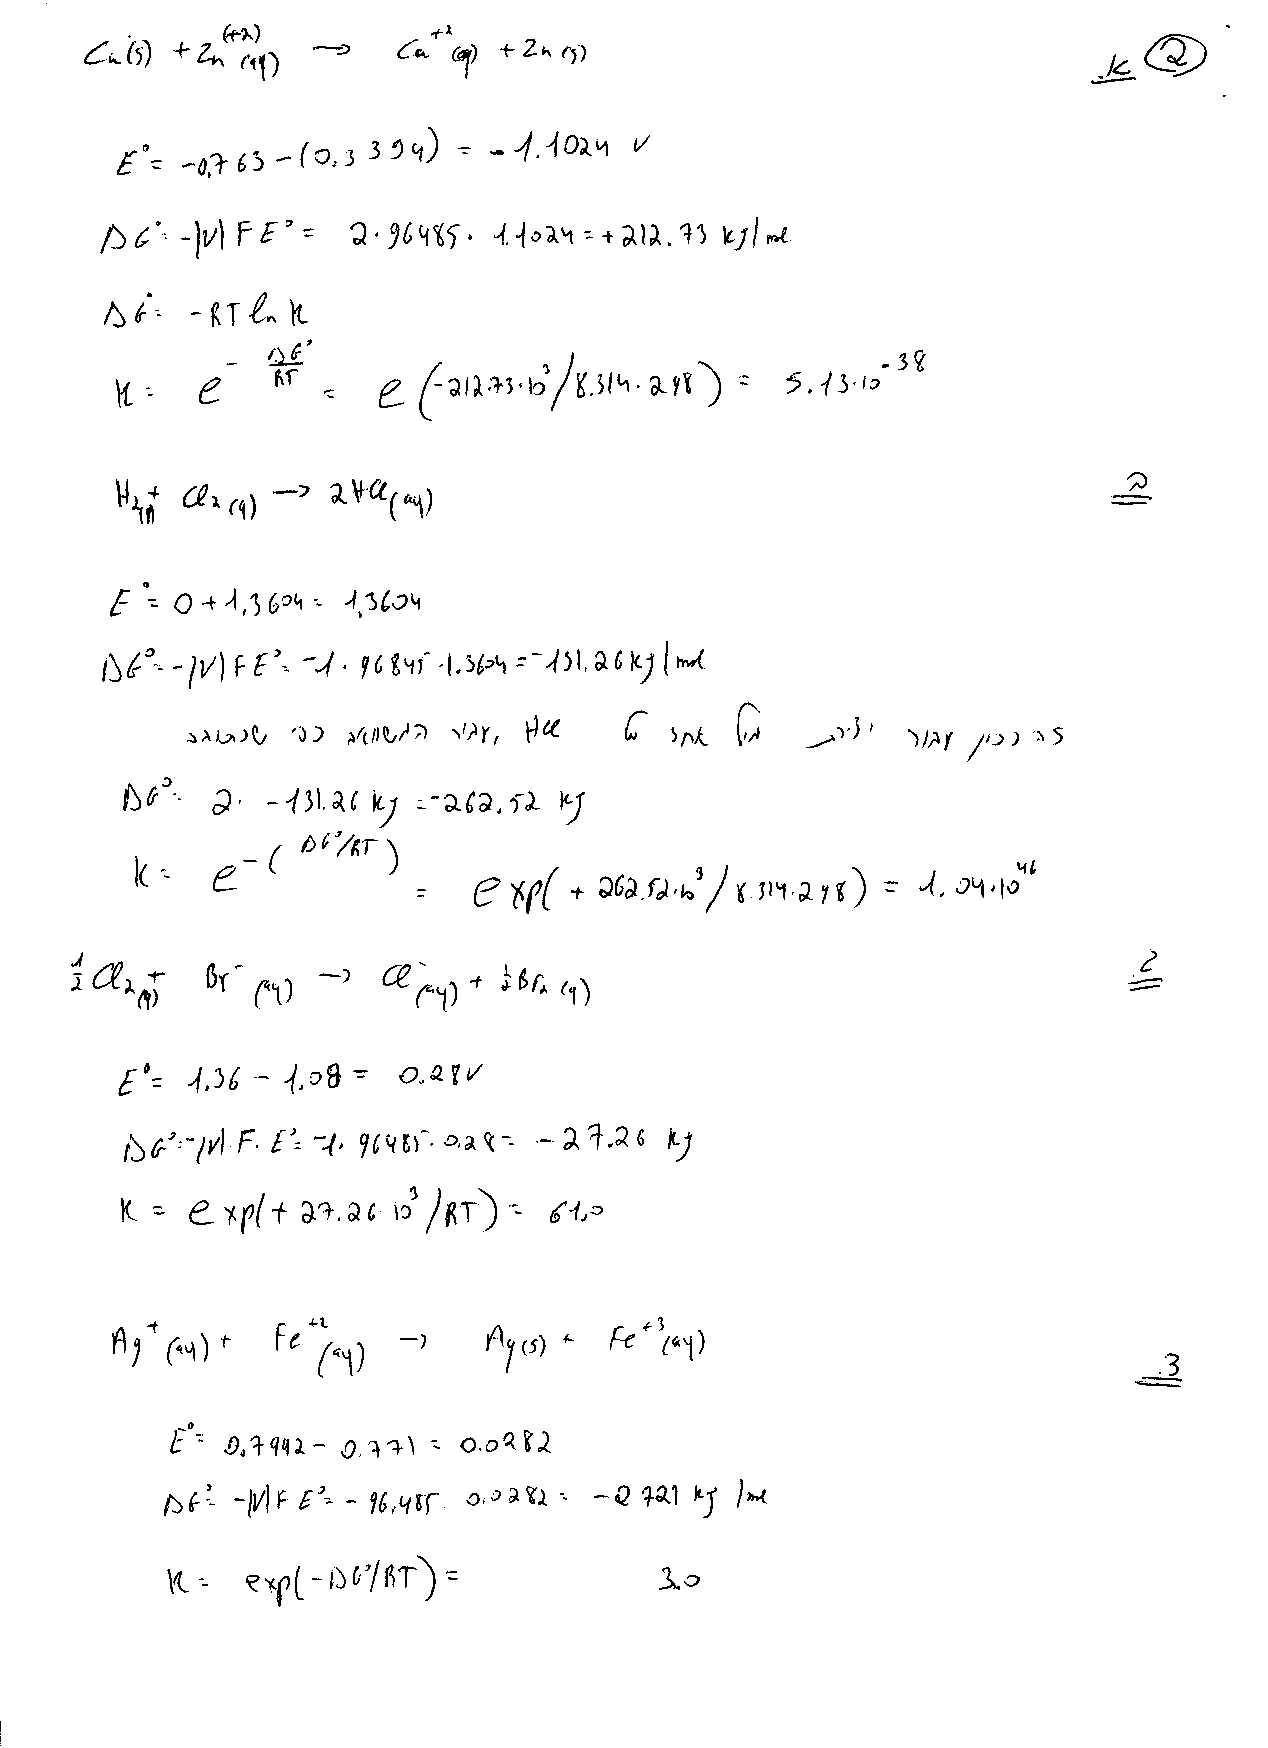 ② א.
Cu(s) + Zn⁽⁺²⁾(aq) → Cu⁺²(aq) + Zn(s)
E° = -0,763 - (0,3394) = -1.1024 V
ΔG° = -|ν| F E° = 2·96485·1.1024 = +212.73 kJ/mol
ΔG° = -RT ln K
K = e^(-ΔG°/RT) = e(-212.73·10³/8.314·298) = 5.13·10⁻³⁸
ב
H₂(g) + Cl₂(g) → 2HCl(aq)
E° = 0 + 1,3604 = 1,3604
ΔG° = -|ν| F E° = -1 · 96845 · 1.3604 = -131.26 kJ/mol
זה נכון עבור יצירת מול אחד של HCl, עבור המשוואה כפי שנכתבה
ΔG° = 2· -131.26 kJ = -262.52 kJ
K = e^-(ΔG°/RT) = exp(+262.52·10³/8.314·298) = 1.04·10⁴⁶
ג.
½Cl₂(g) + Br⁻(aq) → Cl⁻(aq) + ½Br₂(g)
E° = 1,36 - 1,08 = 0.28 V
ΔG° = -|ν| F· E° = -1· 96485· 0.28 = -27.26 kJ
K = exp(+27.26 10³/RT) = 61,0
ד.
Ag⁺(aq) + Fe⁺²(aq) → Ag(s) + Fe⁺³(aq)
E° = 0,7992 - 0.771 = 0.0282
ΔG° = -|ν| F E° = -96,485· 0,0282 = -2 721 kJ/mol
K = exp(-ΔG°/RT) = 3.0